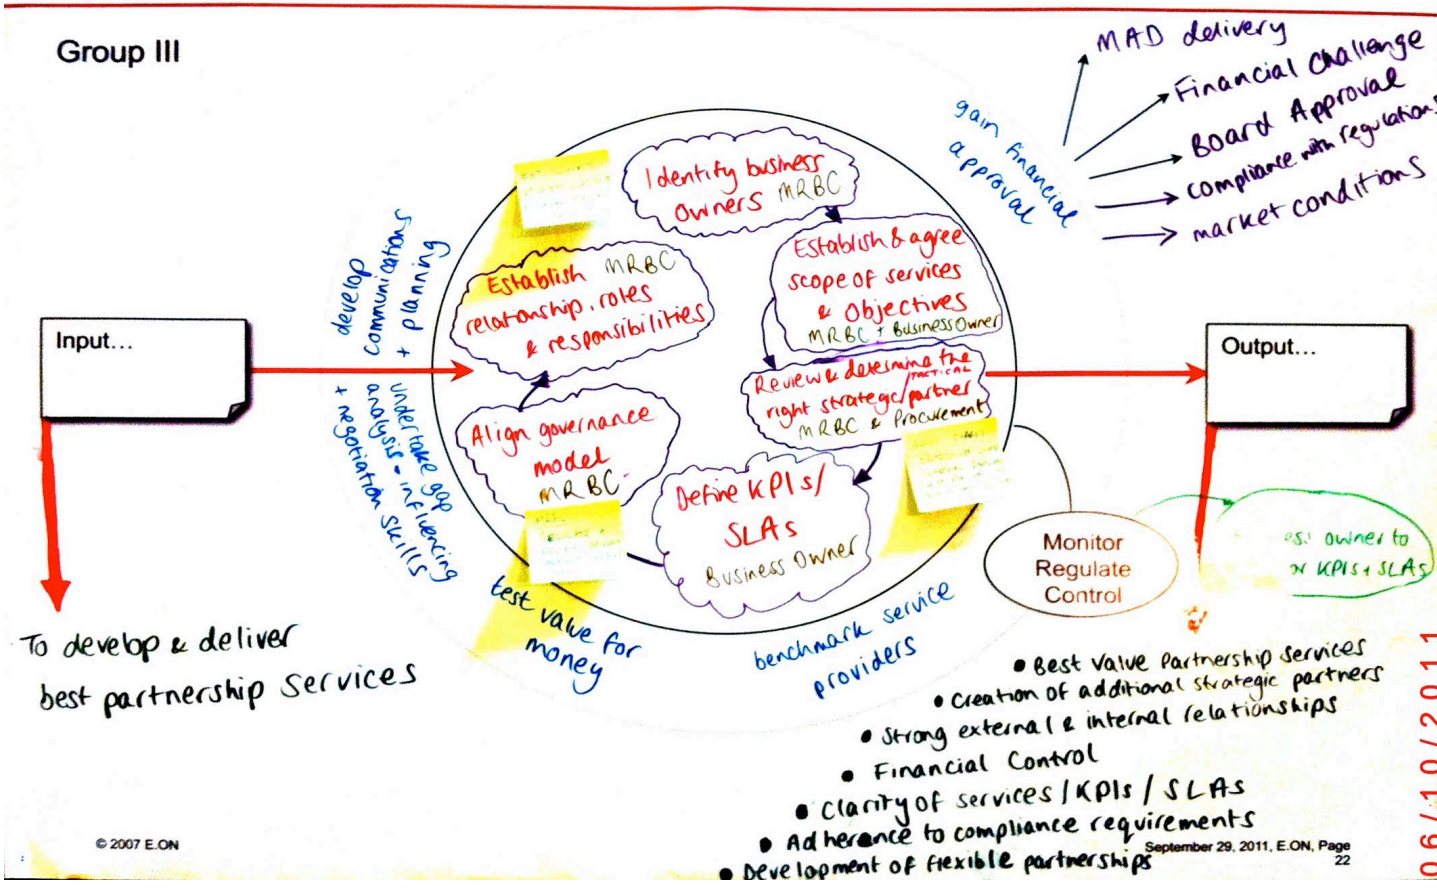 Group III
MAD delivery
Financial Challenge
Board Approval
compliance with regulations
market conditions
gain financial
approval
Identify business
owners MRBC
Establish & agree
scope of services
& Objectives
MRBC + Business Owner
Review & determine the
right strategic/TACTICAL partner
MRBC & Procurement
Define KPIs/
SLAs
Business Owner
Align governance
model
MRBC
Establish MRBC
relationship, roles
& responsibilities
develop
communications
+ planning
undertake gap
analysis - influencing
+ negotiation skills
test value for
money
benchmark service
providers
Input...
Output...
Monitor
Regulate
Control
owner to
KPIs + SLAs
To develop & deliver
best partnership services
• Best Value Partnership services
• Creation of additional strategic partners
• Strong external & internal relationships
• Financial Control
• Clarity of services / KPIs / SLAs
• Adherence to compliance requirements
• Development of flexible partnerships
© 2007 E.ON
September 29, 2011, E.ON, Page
22
06/10/2011